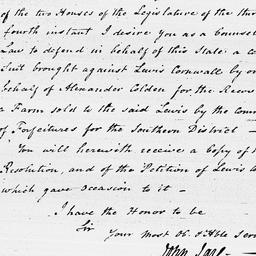 of the two Houses of the Legislature of the thir
fourth instant I desire you as a Counsel
Law to defend in behalf of this State a c
Suit brought against Lewis Cornwall by or
behalf of Alexander Colden for the Recov
a Farm sold to the said Lewis by the comm
of Forfeitures for the Southern District —
You will herewith receive a Copy of t
Resolution, and of the Petition of Lewis Co
which gave occasion to it —
I have the Honor to be
Sir
Your most Ob. & Hble Serv
John Jay —